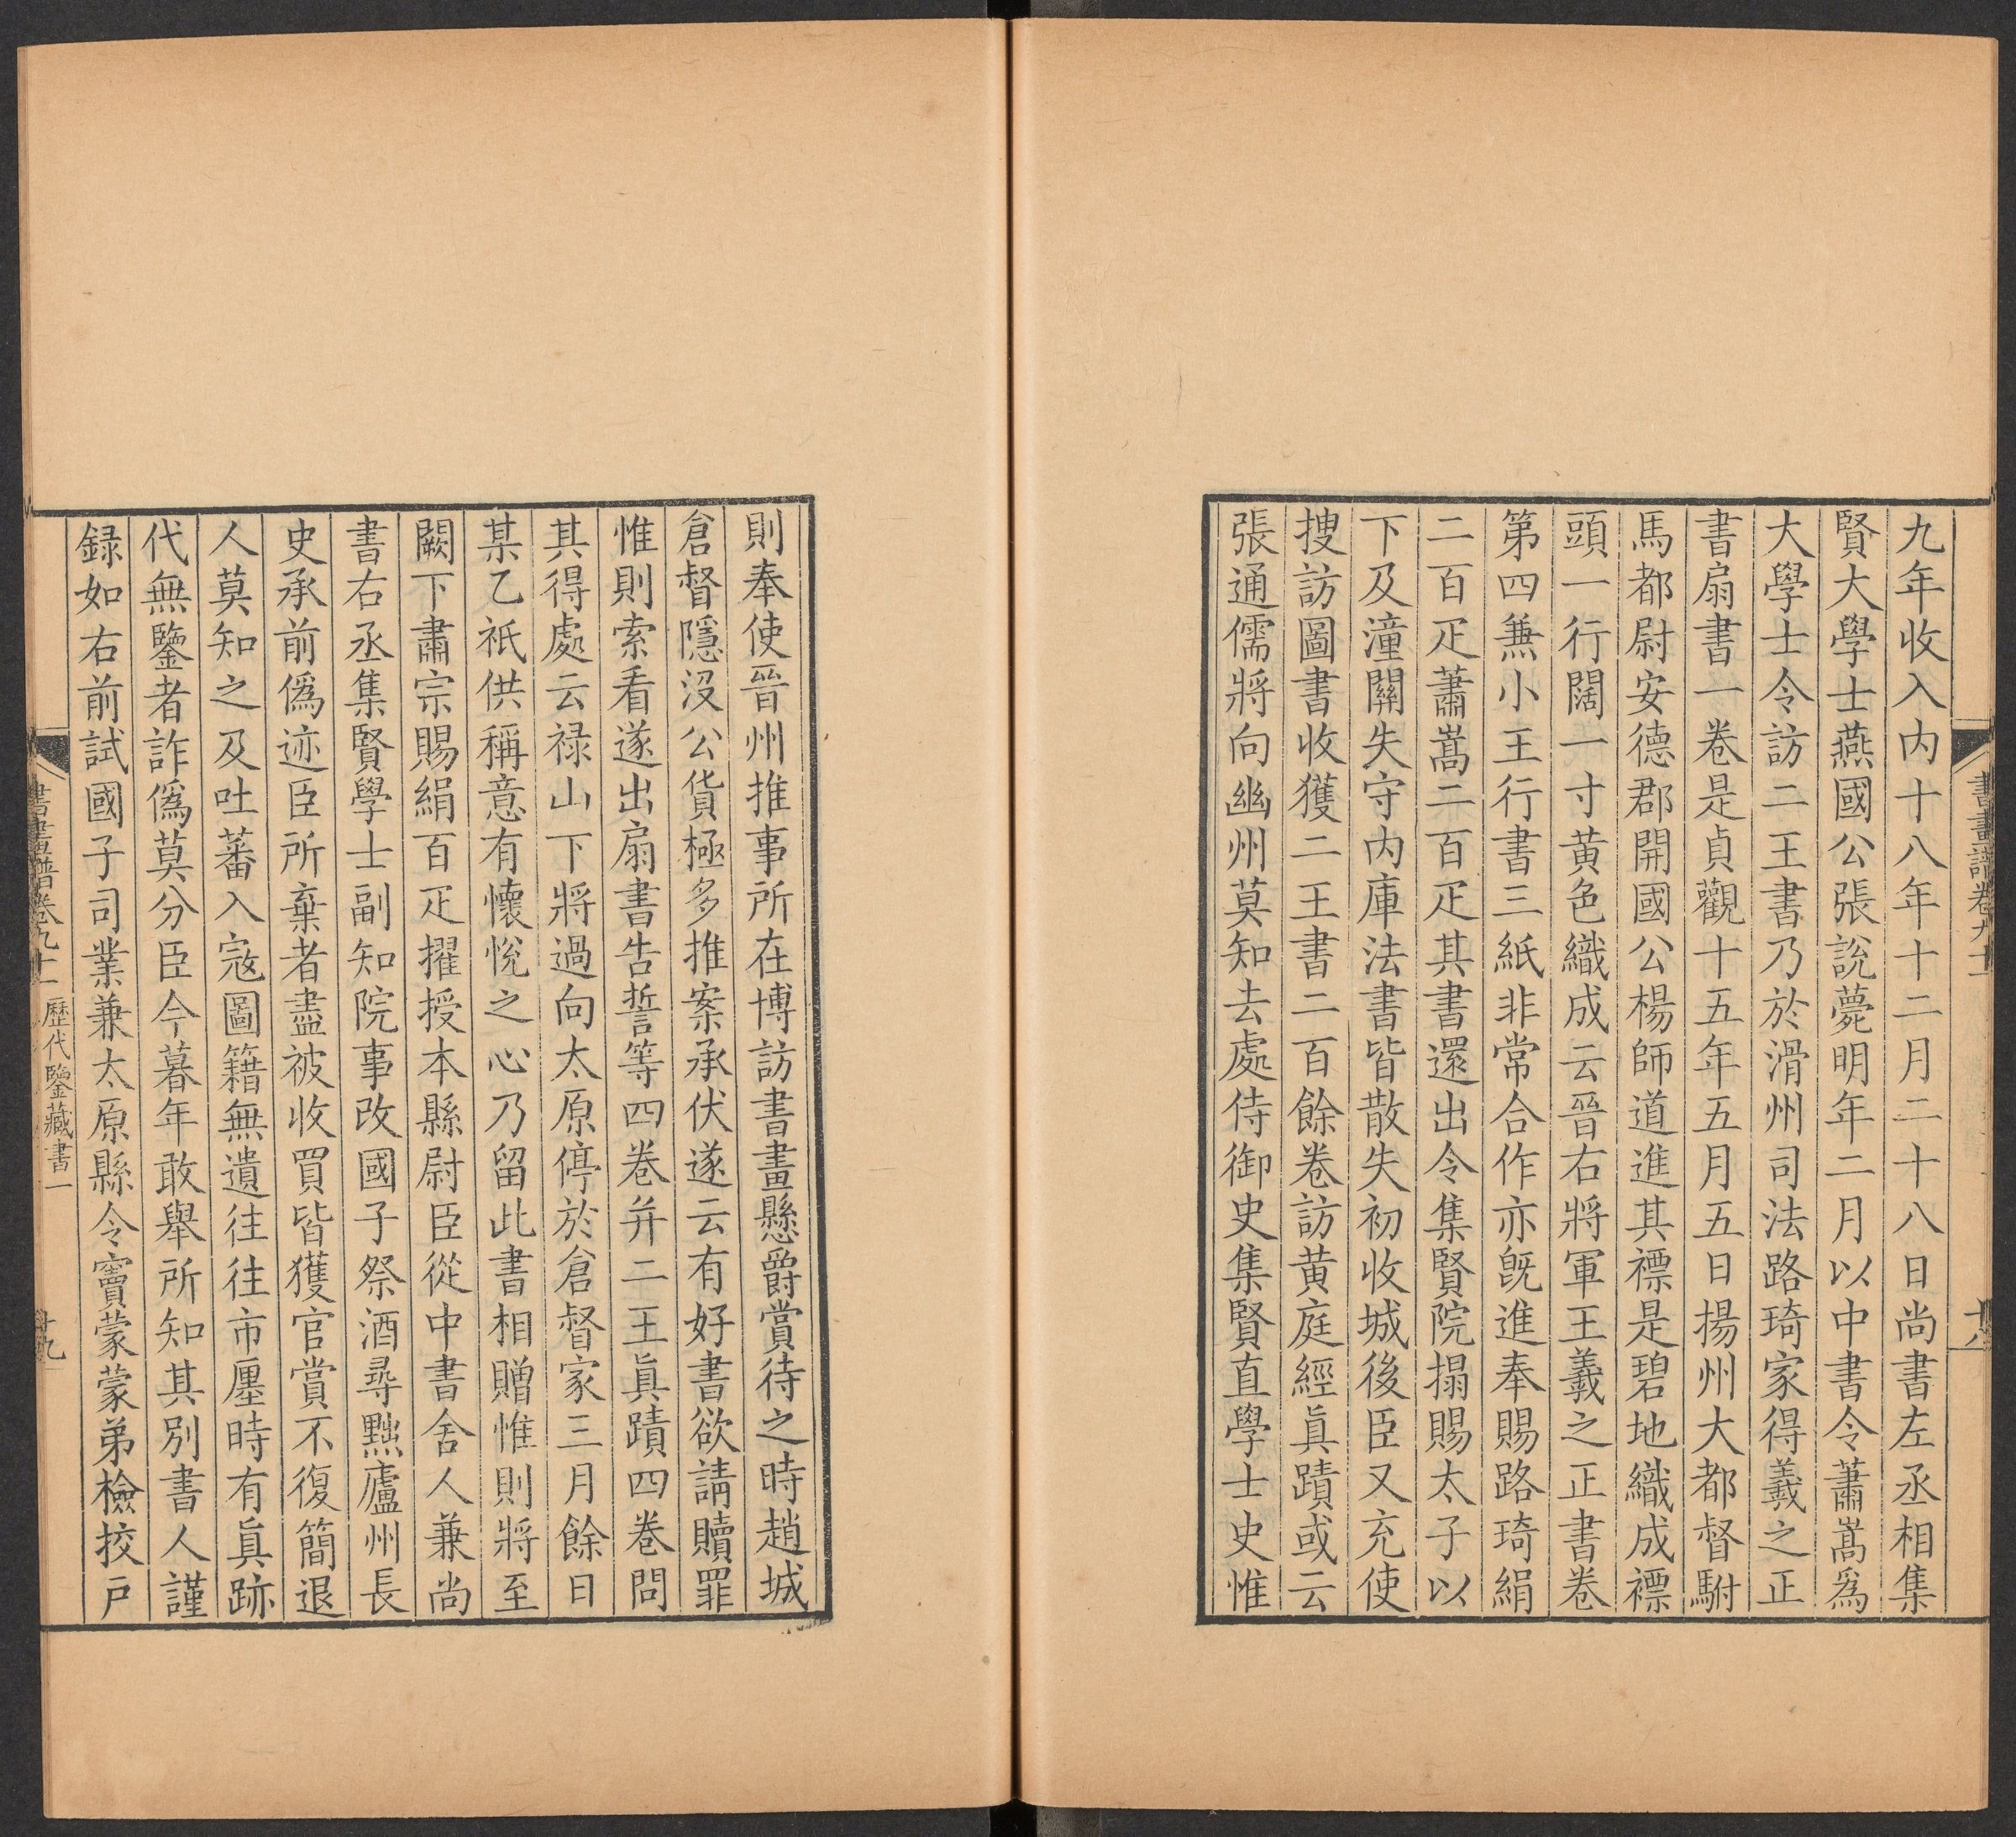 書畫譜卷九十一
十八
九年收入內十八年十二月二十八日尚書左丞相集
賢大學士燕國公張說薨明年二月以中書令蕭嵩爲
大學士令訪二王書乃於滑州司法路琦家得羲之正
書扇書一卷是貞觀十五年五月五日揚州大都督駙
馬都尉安德郡開國公楊師道進其褾是碧地織成褾
頭一行闊一寸黄色織成云晉右將軍王羲之正書卷
第四兼小王行書三紙非常合作亦旣進奉賜路琦絹
二百疋蕭嵩二百疋其書還出令集賢院搨賜太子以
下及潼關失守內庫法書皆散失初收城後臣又充使
搜訪圖書收獲二王書二百餘卷訪黄庭經眞蹟或云
張通儒將向幽州莫知去處侍御史集賢直學士史惟
則奉使晉州推事所在博訪書畫懸爵賞待之時趙城
倉督隱沒公貨極多推案承伏遂云有好書欲請贖罪
惟則索看遂出扇書告誓等四卷并二王眞蹟四卷問
其得處云祿山下將過向太原停於倉督家三月餘日
某乙祇供稱意有懷悅之心乃留此書相贈惟則將至
闕下肅宗賜絹百疋擢授本縣尉臣從中書舍人兼尚
書右丞集賢學士副知院事改國子祭酒尋黜廬州長
史承前僞迹臣所棄者盡被收買皆獲官賞不復簡退
人莫知之及吐蕃入寇圖籍無遺往往市廛時有眞跡
代無鑒者詐僞莫分臣今暮年敢舉所知其別書人謹
録如右前試國子司業兼太原縣令竇蒙蒙弟檢挍戶
書畫譜卷九十一
歷代鑒藏書一
十九